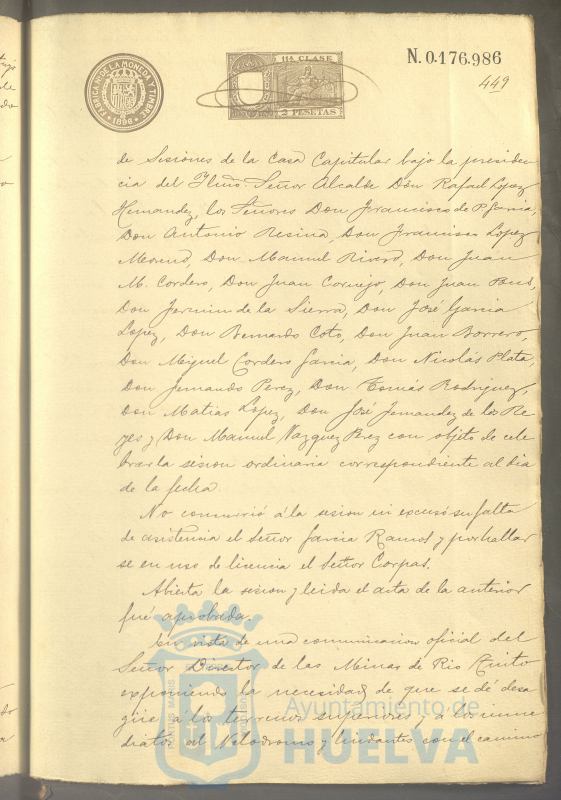 FABRICA N. DE LA MONEDA Y TIMBRE
1896
11A CLASE
2 PESETAS
N. 0.176.986
449
de Sesiones de la Casa Capitular bajo la presiden
cia del Ilmo. Señor Alcalde Don Rafael Lopez
Hernandez, los Señores Don Francisco de P. Garcia,
Don Antonio Resina, Don Francisco Lopez
Moreno, Don Manuel Rivero, Don Juan
M. Cordero, Don Juan Cornejo, Don Juan
Don Fermin de la Sierra, Don José Garcia
Lopez, Don Bernardo Coto, Don Juan Borrero,
Don Miguel Cordero Garcia, Don Nicolás Plata,
Don Fernando Perez, Don Tomás Rodriguez,
Don Matias Lopez, Don José Fernandez de los Re
yes y Don Manuel Vazquez Perez con objeto de cele
brar la sesion ordinaria correspondiente al dia
de la fecha.
No concurrió á la sesion ni excusó su falta
de asistencia el Señor Garcia Ramos y por hallar
se en uso de licencia el Señor Corpas.
Abierta la sesion y leida el acta de la anterior
fué aprobada.
En vista de una comunicacion oficial del
Señor Director de las Minas de Rio Tinto
exponiendo la necesidad de que se dé desa
güe á los terrenos superiores y a los inme
diatos al Velodromo y lindantes con el camino
Ayuntamiento de
HUELVA